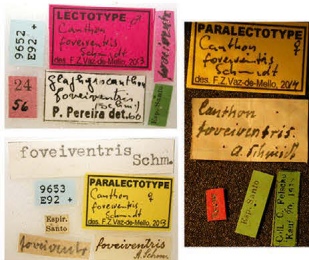 9652
E92 +
LECTOTYPE ♂
Canthon
foveiventris
Schmidt
des. F.Z.Vaz-de-Mello, 2013
24
56
Glaphyrocanthon
foveiventris
(Schm.)
P. Pereira det.
foveiventris
Schm.
9653
E92 +
Espir.
Santo
PARALECTOTYPE
Canthon ♀
foveiventris
Schmidt
des. F.Z.Vaz-de-Mello, 201
foveivent
foveiventris
A. Schm
PARALECTOTYPE
Canthon ♀
foveiventris
Schmidt
des. F.Z.Vaz-de-Mello, 201
Canthon
foveiventris.
A. Schmidt
Esp. Santo
Coll. C. Felsche
Kauf 20, 1918